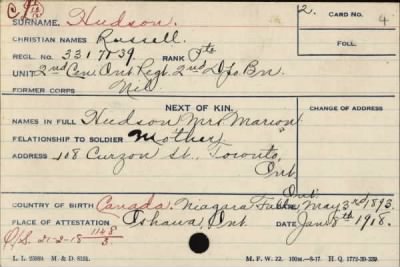 SURNAME. Hudson. 2. CARD No. 4
CHRISTIAN NAMES Russell. FOLL.
REGL. No. 3317739. RANK Pte
UNIT 2nd Cen. Ont Regt. 2nd Dfo Bn.
FORMER CORPS Nil
NEXT OF KIN. CHANGE OF ADDRESS
NAMES IN FULL Hudson Mrs Marion
RELATIONSHIP TO SOLDIER Mother
ADDRESS 108 Curzon St., Toronto,
Ont.
Ont.
COUNTRY OF BIRTH Canada. Niagara Falls DATE May 3rd 1893.
PLACE OF ATTESTATION Oshawa, Ont. DATE Jan 8th 1918.
O/S. 21-2-18 1148/3
L. L. 25984 M. & D. 8151. M. F. W. 22. 100M.-8-17. H. Q. 1772-39-239.